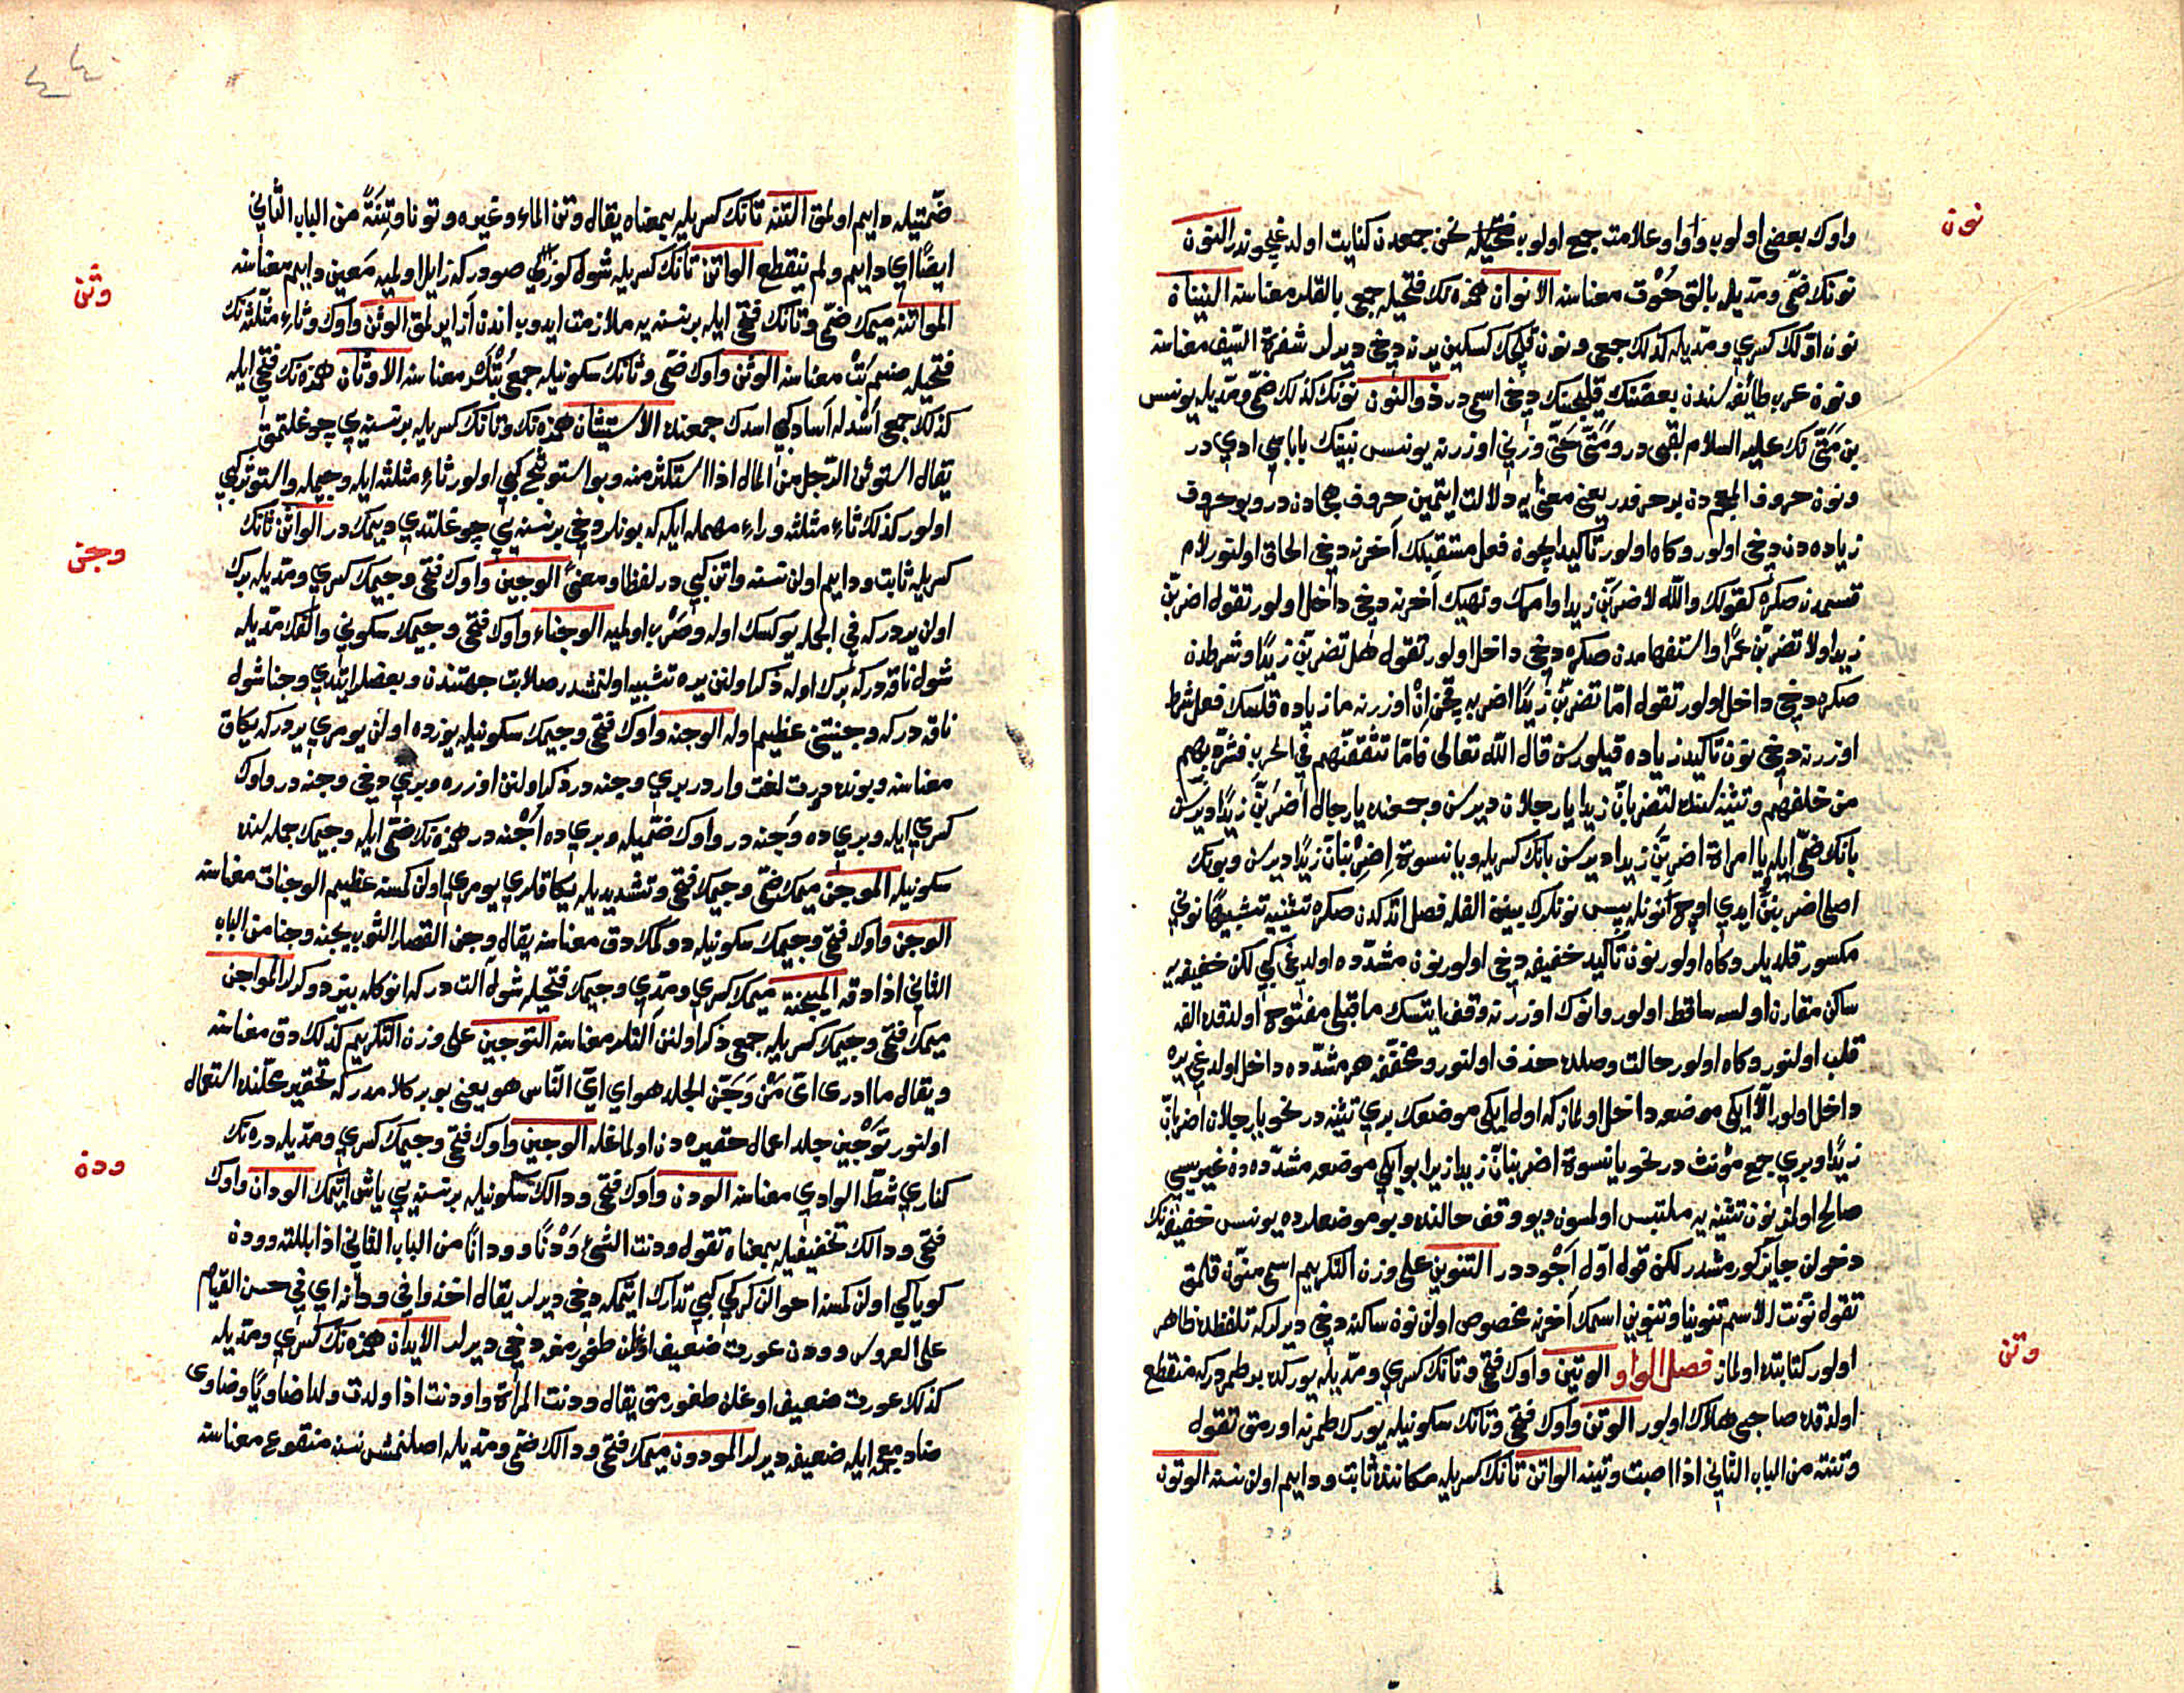 نون
واوك بعضى اولوب واو اوعلامت جمع اولوب فتحيله نحن جمعدن كنايت اولدغيچوندر النون
نونك ضمّى ومدّيله بالق حُوْت معناسنه الانوان همزه نك فتحيله جمعى بالقلر معناسنه النينان
نون اوّلك كسرى ومدّيله كذلك جمعى ونون قلجك كسكين يرنه دخى ديرلر شفرة السّيف معناسنه
ونون عرب طائفه سندن بعضنك قلجنك دخى اسمى در ذو النون نونك كذلك ضمّى ومدّيله يونس
بن مَتَّى نك عليه السلام لقبى در ومَتَّى حَتَّى وزنى اوزرنه يونس نبينك باباسى ادى در
ونون حروف المعجم دن بر حرفدر يعنى معنى يه دلالت ايتمين حروف هجادن در وبو حروف
زياده دن دخى اولور وكاه اولور تأكيد ايچون فعل مستقبلك آخرنه دخى الحاق اولنور لام
قسمدن صكره كقولك والله لاضربنّ زيدا وامرك ونهيك آخرنه دخى داخل اولور تقول اضربنّ
زيدا ولا تضربنّ عمرًا واستفهامدن صكره دخى داخل اولور تقول هل تضربنّ زيدًا وشرطدن
صكره دخى داخل اولور تقول امّا تضربنّ زيدًا اضربه قچن اِنْ اوزرنه ما زياده قلسك فعل شرط
اوزرنه دخى نون تأكيد زياده قيلورسن قال الله تعالى فامّا تثقفنّهم فى الحرب فشرّد بهم
من خلفهم وتثنيه سنده لتضربانّ زيدا يا رجلان ديرسن وجمعنده يا رجال اضربُنّ زيدًا ديرسن
بانك ضمّى ايله يا امراة اضربنّ زيدا ديرسن بانك كسريله ويا نسوة اِضْرِبْنانّ زيدًا ديرسن وبونك
اصلى اضربننّ ايدى اوچ نونله پس نونلرك بينن الفله فصل اتدكدن صكره تثنيه يه تشبيهًا نونى
مكسور قلديلر وكاه اولور نون تأكيد خفيفه دخى اولور نون مشدّده اولدغى كبى لكن خفيفه يه
ساكن مقارن اولسه ساقط اولور وانوك اوزرنه وقف ايتسك ما قبلى مفتوح اولدقده الفه
قلب اولنور وكاه اولور حالت وصلده حذف اولنور ومخفّفه هر مشدّده داخل اولدغى يره
داخل اولور الّا ايكى موضعه داخل اولماز كه اول ايكى موضعك برى تثنيه در نحو يا رجلان اضربانّ
زيدًا وبرى جمع مؤنث در نحو يا نسوة اضربنانّ زيدا زيرا بو ايكى موضعه مشدّده دن غيريسى
صالح اولمز نون تثنيه يه ملتبس اولمسون ديو وقف حالنده وبو موضعلرده يونس خفيفه نك
دخولن جايز كورمشدر لكن قول اوّل اَجْوددر التنوين على وزن التكريم اسمى منوّن قلمق
تقول نوّنت الاسم تنوينا وتنوين اسمك آخرنه مخصوص اولن نون ساكنه دخى ديرلر كه تلفظده ظاهر
اولور كتابتده اولماز فصل الواو الوتين واوك فتحى وتانك كسرى ومدّيله يوركده بر طمردر كه منقطع
اولدقده صاحبى هلاك اولور الوتن واوك فتحى وتانك سكونيله يورك طمرنه اورمق تقول
وتنته من الباب الثانى اذا اصبت وتينه الواتن تانك كسريله مكاننده ثابت ودايم اولن نسنه الوتون
وتن
ضمّتيله دايم اولمق التنه تانك كسريله بمعناه يقال وتن الماء وغيره وتونا وتِنَةً من الباب الثانى
ايضًا اى دايم ولم ينقطع الواتن تانك كسريله شول كوزلى صودر كه زايل اولميه مَعين دايم معناسنه
المواتنه ميمك ضمّى وتانك فتحى ايله بر نسنه يه ملازمت ايدوب اندن آز ايرلمق الوثن واوك وثاء مثلّثه نك
وثن
فتحيله صنم بُتْ معناسنه الوثن واوك ضمّى وثانك سكونيله جمعى بُتْلَر معناسنه الاوثان همزه نك فتحى ايله
كذلك جمعى اُسْد له آساد كبى اسدك جمعنده الاستيثان همزه نك وتانك كسريله بر نسنه يى چوغلتمق
يقال استوثن الرّجل من المال اذا استكثر منه وبو استوثج كبى اولور ثاء مثلثه ايله وجيمله واستوثر كبى
اولور كذلك ثاء مثلثه وراء مهمله ايله كه بونلر دخى بر نسنه يى چوغلتدى ديمكدر الواثن ثانك
كسريله ثابت ودايم اولن نسنه واتن كبى در لفظا ومعنًى الوجين واوك فتحى وجيمك كسرى ومدّيله برك
وجن
اولن يردر كه فى الجمله يوكسك اوله وصَرْب اولميه الوجناء واوك فتحى وجيمك سكونى والفك مدّيله
شول ناقه در كه برك اوله ذكر اولنن يره تشبيه اولنمشدر صلابت جهتندن وبعضلر ايتدى وجنا شول
ناقه در كه وجنتى عظيم اوله الوجنه واوك فتحى وجيمك سكونيله يوزده اولن يومرى يردر كه يكاق
معناسنه وبونده درت لغت واردر برى وجنه در ذكر اولنن اوزره وبرى دخى وجنه در واوك
كسرى ايله وبرى ده وُجنه در واوك ضمّيله وبرى ده اُجْنه در همزه نك ضمّى ايله وجيمك جمله سنده
سكونيله الموجّن ميمك ضمّى وجيمك فتحى وتشديديله يكاقلرى يومرى اولن كمسنه عظيم الوجنات معناسنه
الوجن واوك فتحى وجيمك سكونيله دوكمك دق معناسنه يقال وجن القصار الثوب يجنه وجنا من الباب
الثانى اذا دقه الميجنة ميمك كسرى ومدّى وجيمك فتحيله شول آلت در كه انوكله بيز دوكرلر المواجن
ميمك فتحى وجيمك كسريله جمعى ذكر اولنن آلتلر معناسنه التوجين على وزن التكريم كذلك دق معناسنه
ويقال ما ادرى اىّ مَنْ وَجّن الجلد هو اى اىّ النّاس هو يعنى بو بر كلامدر كه تحقير محلّنده استعمال
اولنور تَوْجين جلد اعمال حقيره دن اولماغله الوجين واوك فتحى وجيمك كسرى ومدّيله دره نك
كنارى شطّ الوادى معناسنه الودن واوك فتحى ودالك سكونيله بر نسنه يى ياش ايتمك الودان واوك
ودن
فتحى ودالك تخفيفيله بمعناه تقول ودنت الشئ وَدْنًا وودانًا من الباب الثانى اذا بللته وودن
كويا كى اولن كمسنه احوالن كركى كبى تدارك ايتمكه دخى ديرلر يقال اخذوا فى ودانه اى فى حسن القيام
على العروس وودن عورت ضعيف اوغلن طغورمغه دخى ديرلر الايدان همزه نك كسرى ومدّيله
كذلك عورت ضعيف اوغلن طغورمق يقال ودنت المرأة واودنت اذا ولدت ولدا ضاويًا وضاوى
ضاد معجمه ايله ضعيفه ديرلر المودون ميمك فتحى ودالك ضمّى ومدّيله اصلنمش نسنه منقوع معناسنه